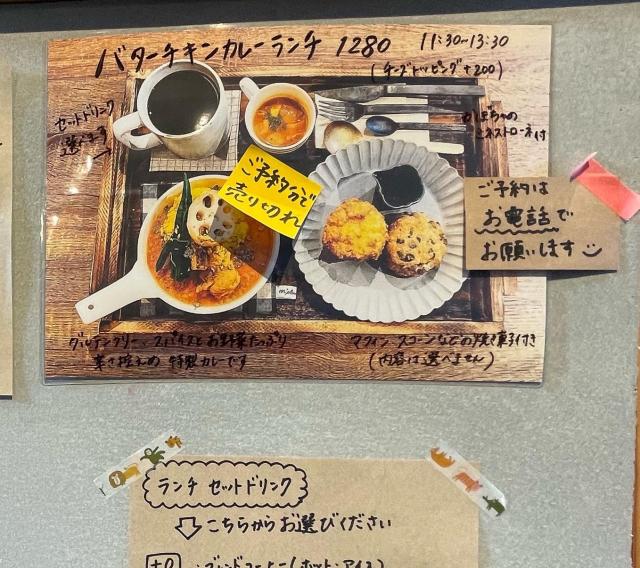 バターチキンカレーランチ 1280
11:30~13:30
(チーズトッピング+200)
セットドリンク
選べます
かぼちゃの
ミネストローネ付
ご予約分で
売り切れ
ご予約は
お電話で
お願いします
グルテンフリー、スパイスとお野菜たっぷり
辛さ控えめ 特製カレーです
マフィン スコーンなどの焼き菓子付き
(内容は選べません)
ランチ セットドリンク
こちらからお選びください
+0 ・ブレンドコーヒー(ホット・アイス)